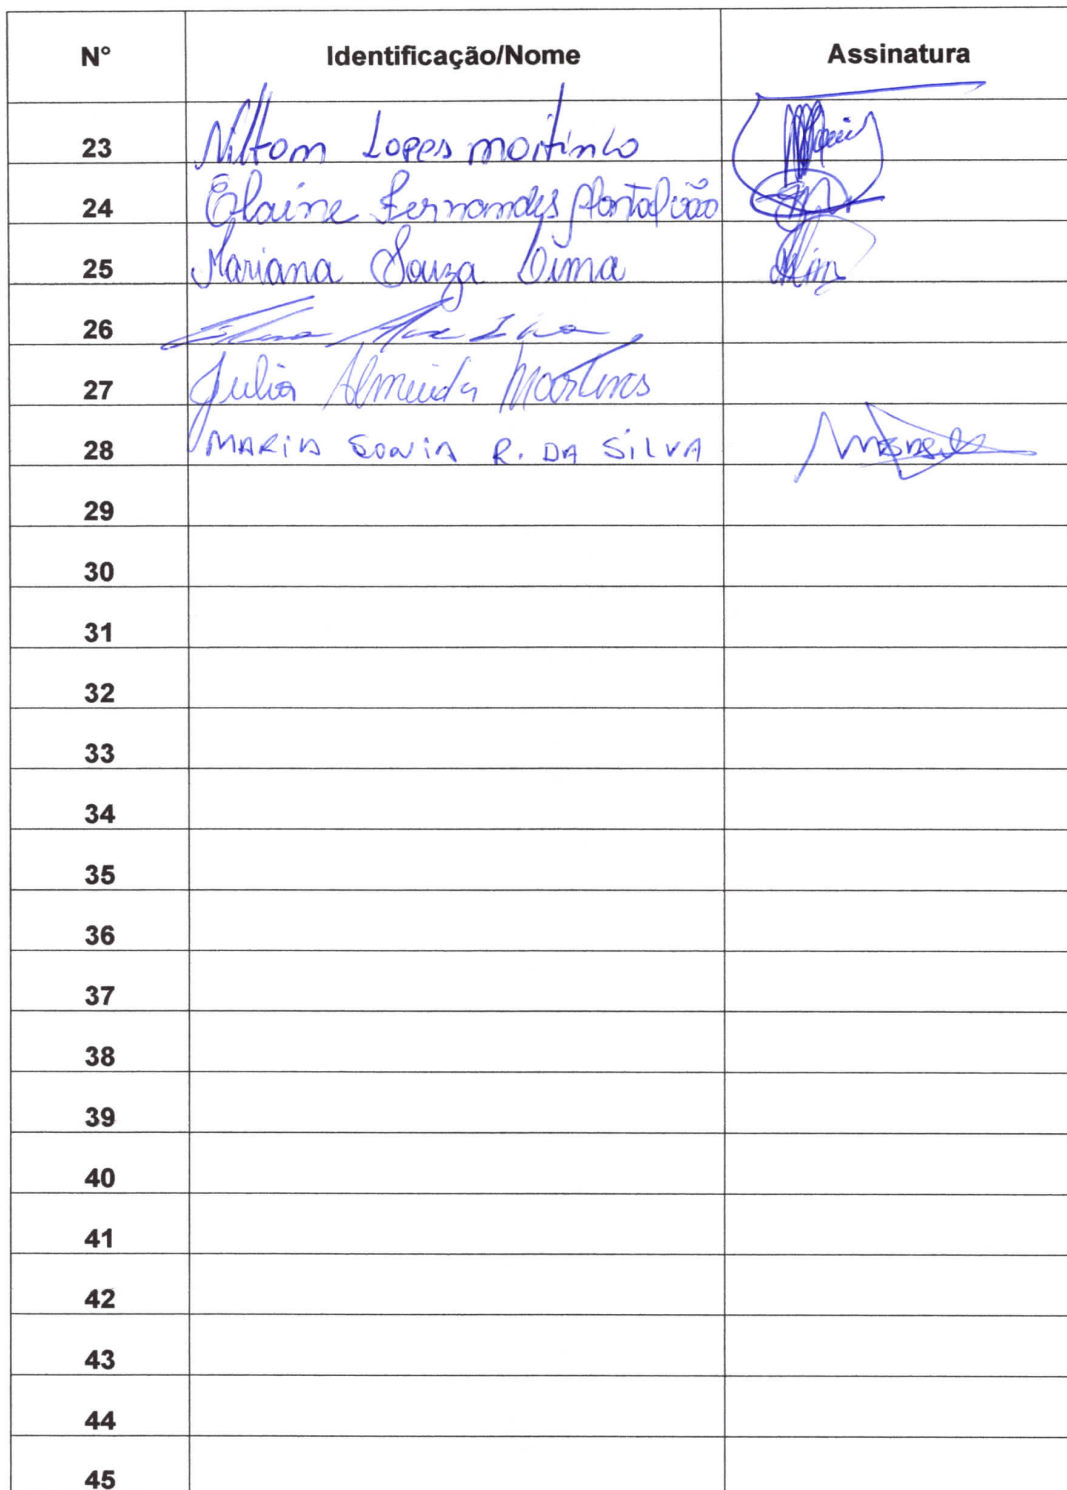 N° Identificação/Nome Assinatura
23 Niltom Lopes moitinho
24 Elaine Fernandes
25 Mariana Souza Lima
26
27 Julia Almeida Martins
28 MARIA SONIA R. DA SILVA
29
30
31
32
33
34
35
36
37
38
39
40
41
42
43
44
45